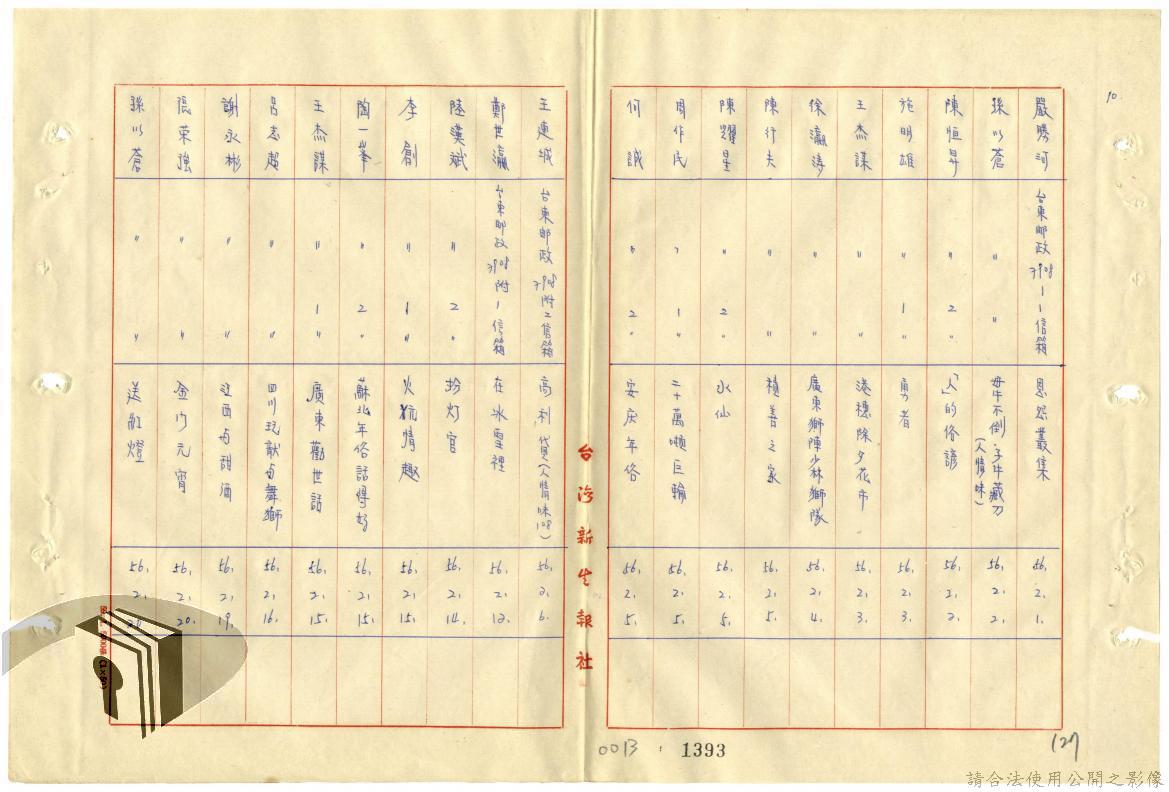 10.
嚴勝河 台東郵政7908-1-1信箱 恩怨叢集 56. 2. 1.
孫以蒼 〃 〃 母牛不倒·子牛藏刀(人情味) 56. 2. 2.
陳恒昇 〃 2 〃 「人」的俗諺 56. 2. 2.
施明雄 〃 1 〃 勇者 56. 2. 3.
王杰謀 〃 〃 港穗除夕花市 56. 2. 3.
徐瀛濤 〃 〃 廣東獅陣少林獅隊 56. 2. 4.
陳行夫 〃 〃 積善之家 56. 2. 5.
陳耀星 〃 2 〃 水仙 56. 2. 5.
周作民 〃 1 〃 二十萬噸巨輪 56. 2. 5.
何誠 〃 2 〃 安庆年俗 56. 2. 5.
台灣新生報社
王連城 台東郵政7908附2信箱 高利貸(人情味108) 56. 2. 6.
鄭世瀛 台東郵政7908附1信箱 在冰雪裡 56. 2. 12.
陸漢斌 〃 2 〃 扮灯官 56. 2. 14.
李創 〃 1 〃 火炕情趣 56. 2. 15.
陶一峯 〃 2 〃 蘇北年俗話得好 56. 2. 15.
王杰謀 〃 1 〃 廣東勸世話 56. 2. 15.
呂志超 〃 〃 四川玩獻与舞獅 56. 2. 16.
謝永彬 〃 〃 江西与甜酒 56. 2. 19.
張荣強 〃 〃 金门元宵 56. 2. 20.
孫以蒼 〃 〃 送紅燈 56. 2. 20.
0013 : 1393
127
請合法使用公開之影像